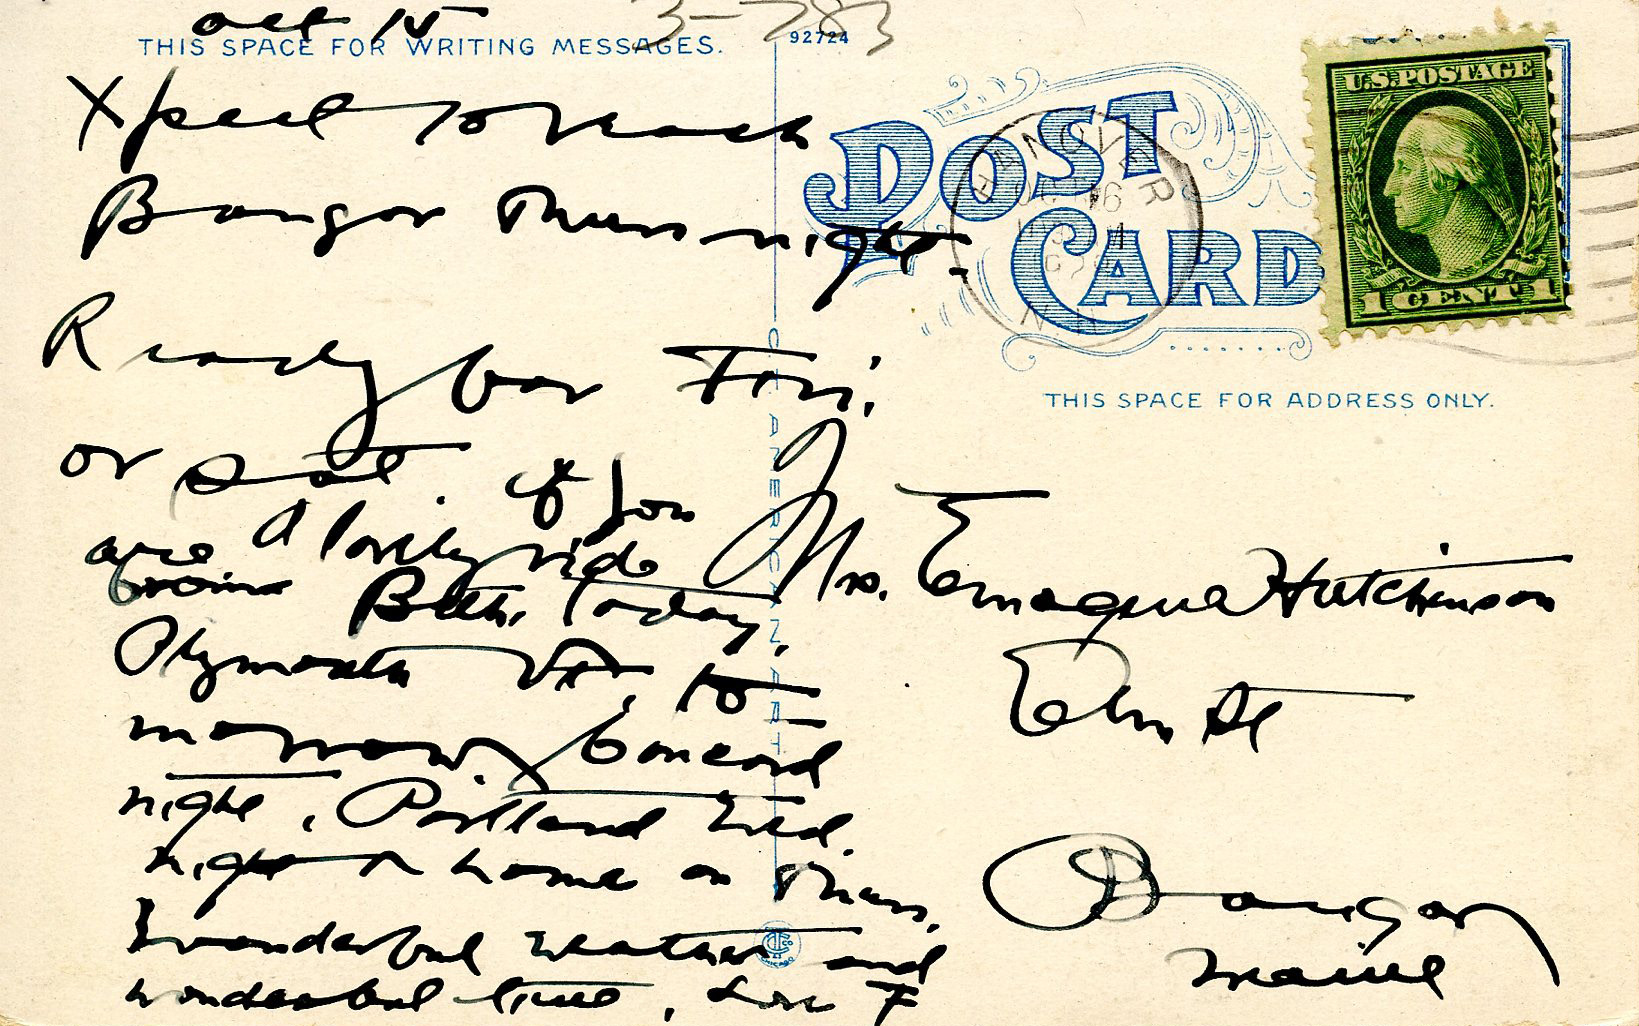 Oct 15
3-783
THIS SPACE FOR WRITING MESSAGES.
92724
Xpect to reach
Bangor Thurs night.
Ready for Fri.
or Sat. if you
are
A lovely ride
Beth. today,
Plymouth Vt, to
morrow, Concord
night, Portland Wed.
night & home on Thurs.
Wonderful weather and
wonderful time, Love F
C.T. AMERICAN ART
POST
CARD
HANOVER
N.H.
U.S. POSTAGE
1 CENT 1
THIS SPACE FOR ADDRESS ONLY.
Mrs. Emogene Hutchinson
Elm St
Bangor
Maine